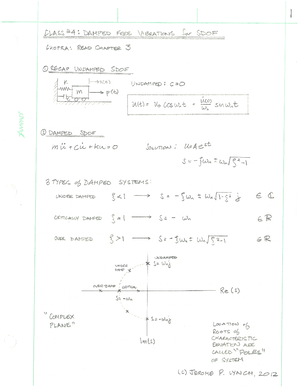 1
CLASS #4: DAMPED FREE VIBRATIONS for SDOF
CHOPRA: READ CHAPTER 3
① RECAP UNDAMPED SDOF
k
m
p(t)
UNDAMPED: C=0
u(t) = u₀ cos ωₙt + u̇(0)/ωₙ sin ωₙt
② DAMPED SDOF
mü + cu̇ + ku = 0
SOLUTION: u = Ae^st
s = -ζωₙ ± ωₙ√(ζ²-1)
3 TYPES OF DAMPED SYSTEMS:
UNDER DAMPED ζ<1 → s = -ζωₙ ± ωₙ√(1-ζ²) j ∈ ℂ
CRITICALLY DAMPED ζ=1 → s = -ωₙ ∈ ℝ
OVER DAMPED ζ>1 → s = -ζωₙ ± ωₙ√(ζ²-1) ∈ ℝ
UNDAMPED
UNDER DAMP
S=ωₙj
OVER DAMP
CRITICAL
Re(s)
S=-ωₙ
S=-ωₙj
Im(s)
"COMPLEX
PLANE"
LOCATION OF
ROOTS OF
CHARACTERISTIC
EQUATION ARE
CALLED "POLES"
OF SYSTEM
(c) JEROME P. LYNCH, 2012